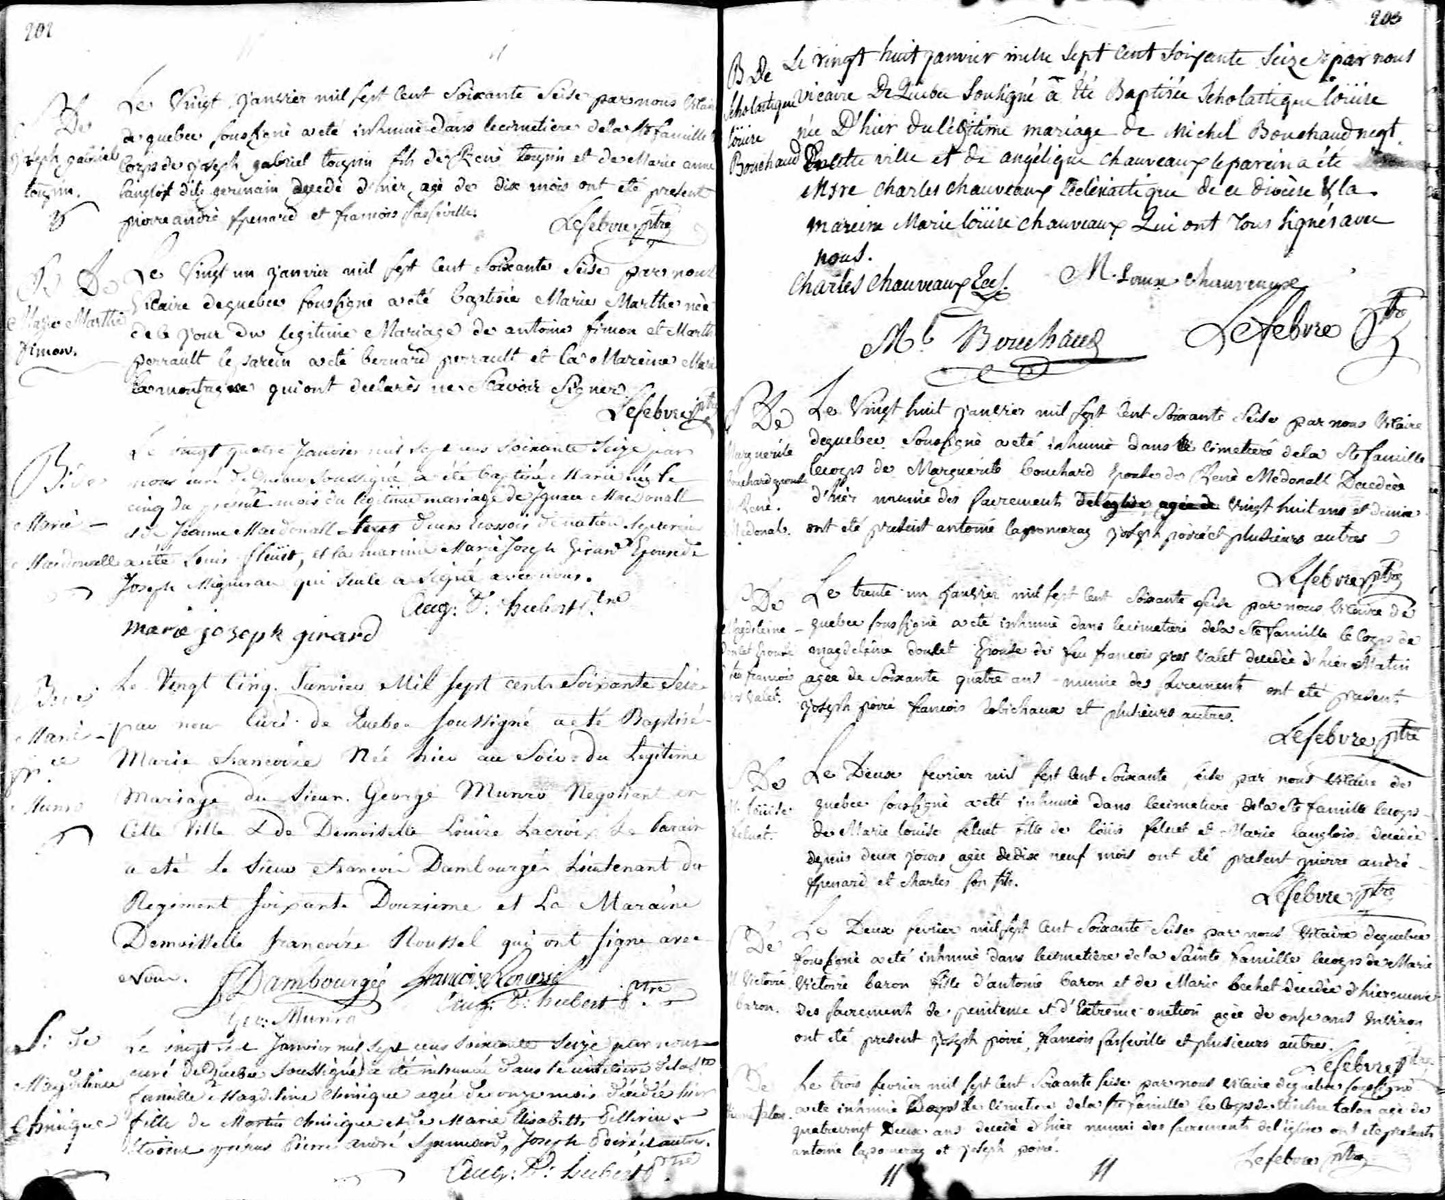 202
S. De
Joseph gabriel
tougnin.
Le Vingt Janvier mil sept Cent Soixante Seise par nous Vicaire
de quebec soussigné a eté inhumé dans le cimetiere de la Ste famille le
Corps de joseph gabriel tougnin fils de René tougnin et de Marie anne
Langlois dite germain decedé d'hier, agé de dix mois ont eté present
pierre andré spenard et francois falseville.
Lefebvre ptre
B De
Marie Marthe
Simon.
Le Vingt un janvier mil sept Cent Soixante Seise par nous
Vicaire de quebec soussigné a eté baptisée Marie Marthe née
de le jour du legitime Mariage de antoine Simon et Marthe
perrault le parein a eté bernard perrault et la Mareine Marie
Lamontagne qui ont declarés ne Scavoir Signer.
Lefebvre ptre
B. de
Marie
Macdonall
Le vingt quatre Janvier mil sept cens soixante Seize par
nous curé de Quebec soussigné a été baptisée Marie née le
cinq du présent mois du legitime mariage de Ignace Macdonall
et de Jeanne Macdonall tous deux ecossois de nation le parein
a eté Louis fluët, et la marine Marie Joseph Girard Epouse de
Joseph Migneron qui seule a signé avec nous.
Aug: D. hubert Ptre
marie joseph girard
B. de
Marie
fr. ce
Munro
Le Vingt Cinq Janvier Mil sept cent Soixante Seize
par nous Curé de Quebec soussigné a eté Baptisé
Marie francoise Née hier au Soir du Legitime
Mariage du Sieur George Munro Negotiant en
Cette Ville & de Demoiselle Louise Lacroix Le Parain
a eté Le Sieur francois Dambourgés Lieutenant du
Regiment soixante Douzieme et La Maraine
Demoiselle francoise Roussel qui ont signe avec
Nous.
f Dambourgés francoise Roussel
Aug: D. hubert Ptre
Geo: Munro
S. de
Magdeleine
Chinique
Le vingt sept Janvier mil sept cens soixante Seize par nous
curé de Quebec soussigné a été inhumée dans le cimetiere de la Ste
famille Magdeleine Chinique agée de onze mois décédée hier
fille de Martin chinique et de Marie Elisabeth Pellerin
etoient presens Pierre andré Spennard, Joseph Poiré, et autres.
Aug: D. hubert Ptre
203
B De
Scholastique
loüise
Bouchaud
Le vingt huit janvier mille Sept Cent Soixante Seize par nous
vicaire De Quebec Soussigné a Eté Baptisée Scholastique loüise
née D'hier du légitime mariage de Michel Bouchaud negt
De cette ville et de angélique Chauveaux le parein a été
messre charles chauveaux Ecclésiastique de ce diocèse & la
mareine Marie loüise chauveaux Qui ont Tous Signés avec
nous.
Charles Chauveaux Eccl. M. Louise Chauveaux
Ml Bouchaud Lefebvre ptre
S De
Marguerite
bouchard epouse
René
Mcdonall.
Le Vingt huit janvier mil sept Cent Soixante Seise par nous Vicaire
de quebec Soussigné a eté inhumé dans le cimetiere de la Ste famille
le corps de Marguerite bouchard Epouse de René Mcdonall Decedée
d'hier munie des sacrements de l'eglise agée de Vingt huit ans et demie
ont eté present antoine laponneray joseph poiré et plusieurs autres
Lefebvre ptre
S De
Magdeleine
doulet Epouse
de francois
gros Valet.
Le trente un janvier mil sept Cent Soixante Seise par nous Vicaire de
quebec soussigné a eté inhumé dans le cimetiere de la Ste famille le Corps de
magdeleine doulet Epouse de feu francois gros Valet decedée d'hier Matin
agée de Soixante quatre ans munie des sacrements ont eté present
joseph poiré francois robichaux et plusieurs autres.
Lefebvre ptre
S De
M. Loüise
feluet.
Le Deux fevrier mil sept Cent Soixante Seise par nous Vicaire de
quebec soussigné a eté inhumé dans le cimetiere de la Ste famille le corps
de Marie Louise feluet fille de loüis feluet et Marie langlois decedée
depuis deux jours agée de dix neuf mois ont eté present pierre andré
spenard et charles son fils.
Lefebvre ptre
S De
M Victoire
baron.
Le Deux fevrier mil sept Cent Soixante Seise par nous Vicaire de quebec
soussigné a eté inhumé dans le cimetiere de la Sainte famille le corps de Marie
Victoire baron fille d'antoine baron et de Marie bechet decedée d'hier munie
des sacrement de penitence et d'Extreme onction agée de onze ans Environ
ont eté present joseph poiré, francois falseville et plusieurs autres.
Lefebvre ptre
S De
talon.
Le trois fevrier mil sept Cent Soixante Seise par nous Vicaire de quebec soussigné
a eté inhumé dans le Cimetiere de la Ste famille le Corps de talon agé de
quatrevingt Deux ans decedé d'hier muni des sacrements de l'église ont eté presents
antoine laponneray et joseph poiré.
Lefebvre ptre